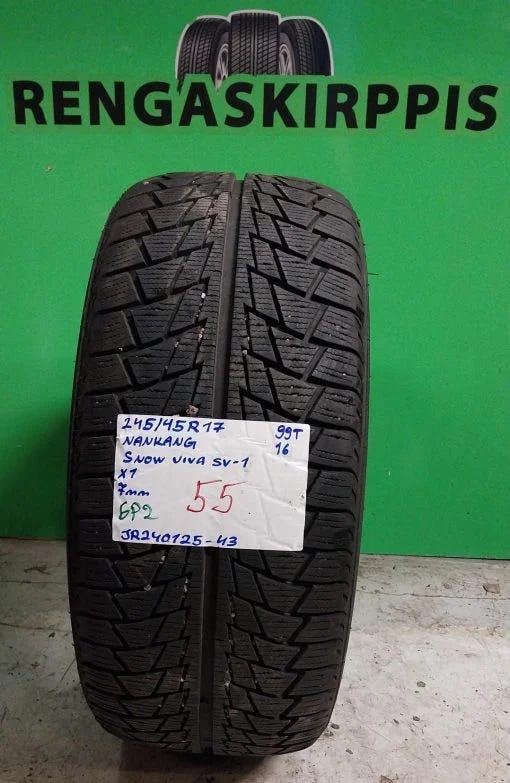 RENGASKIRPPIS
245/45R17 99T
NANKANG 16
SNOW VIVA SV-1
X1
7mm
6P2 55
JR240125-43